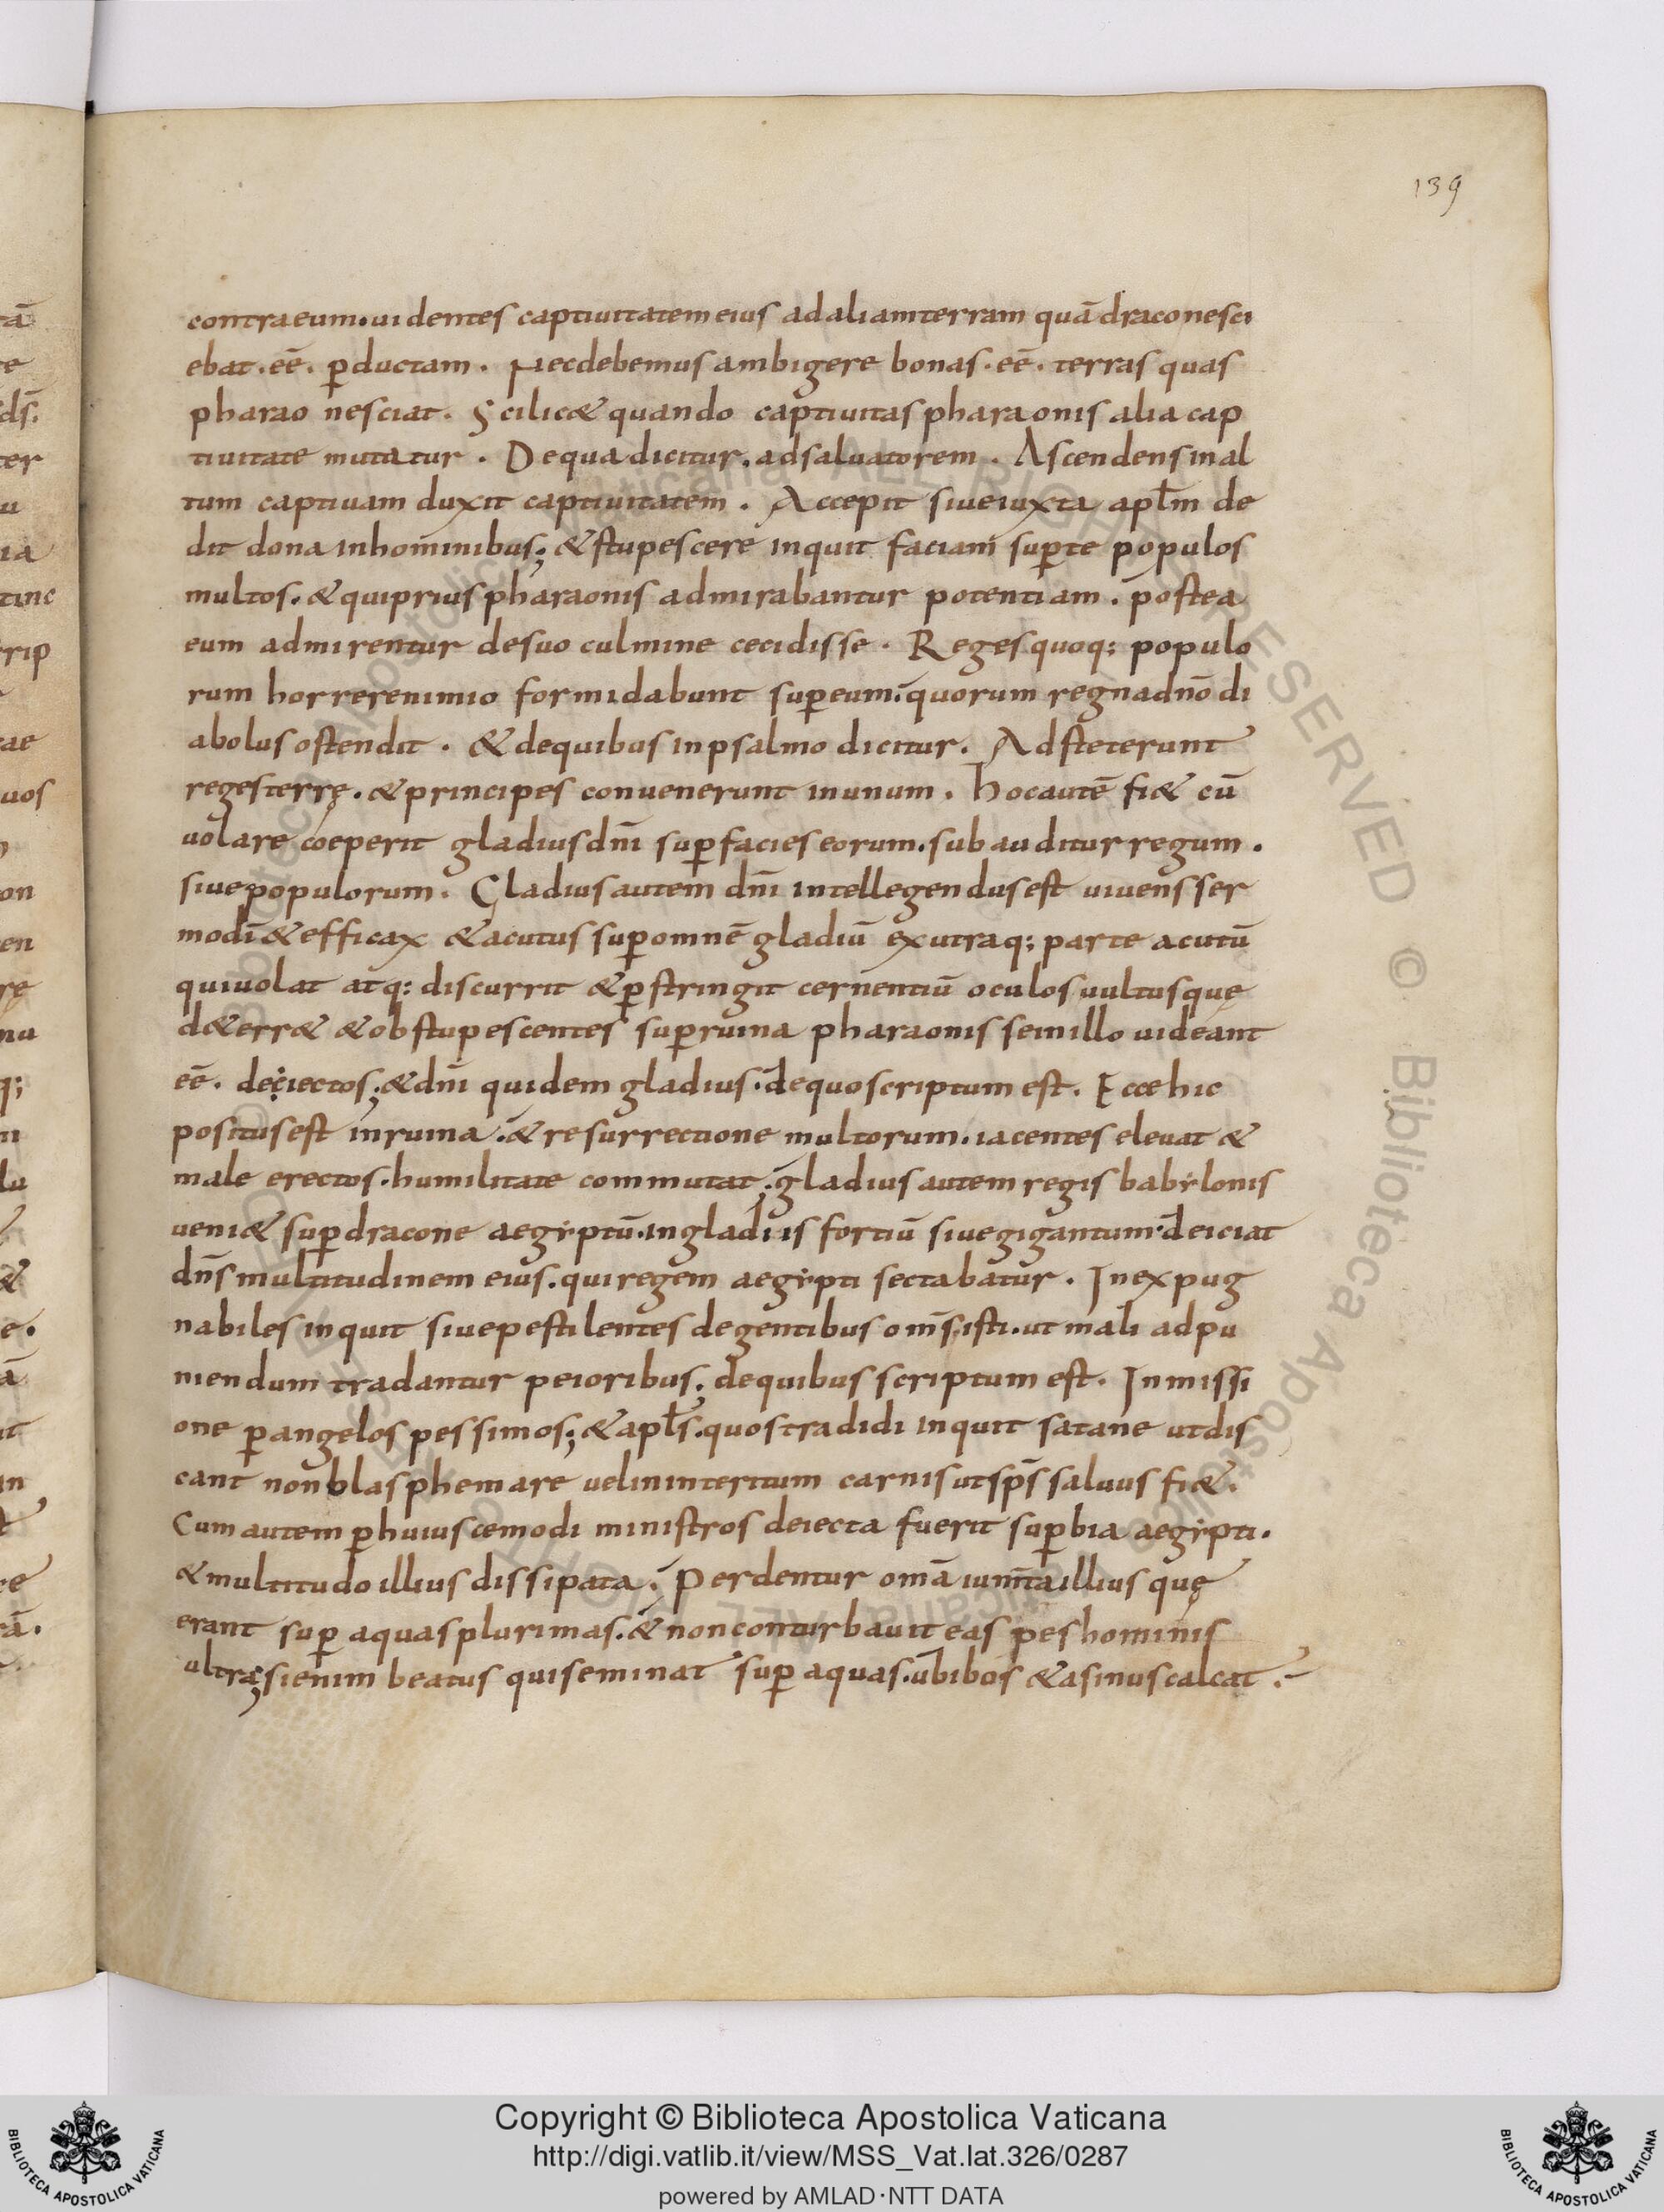 139
contra eum. uidentes captiuitatem eius ad aliam terram quā draco nesci
ebat. eē. ꝑductam. Nec debemus ambigere bonas. eē. terras quas
pharao nesciat. Scilic& quando captiuitas pharaonis alia cap
tiuitate mutatur. De qua dicitur. ad saluatorem. Ascendens in al
tum captiuam duxit captiuitatem. Accepit siue iuxta apłm de
dit dona in hominibus; & stupescere inquit faciam suꝑ te populos
multos. & qui prius pharaonis admirabantur potentiam. postea
eum admirentur de suo culmine cecidisse. Reges quoq; populo
rum horrere nimio formidabunt suꝑ eum. quorum regna dn̄o di
abolus ostendit. & de quibus in psalmo dicitur. Adsteterunt
reges terrę. & principes conuenerunt in unum. hoc autē fi& cū
uolare coeperit gladius dn̄i suꝑ facies eorum. subauditur regum.
siue populorum. Gladius autem dn̄i intellegendus est uiuens ser
mo dī & efficax & acutus suꝑ omnē gladiū ex utraq; parte acutū
qui uolat atq; discurrit & ꝑstringit cernentiū oculos uultusque
d&err& & obstupescentes suꝑ ruina pharaonis se in illo uideant
eē. deiectos; & dn̄i quidem gladius. de quo scriptum est. Ecce hic
positus est in ruina. & resurrectione multorum. iacentes eleuat &
male erectos. humilitate commutat; gladius autem regis babẏlonis
ueni& suꝑ dracone aegẏptū. in gladiis fortiū siue gigantum. deiciat
dn̄s multitudinem eius. qui regem aegẏpti sectabatur. Inexpug
nabiles inquit siue pestilentes de gentibus om̄s isti. ut mali ad pu
niendum tradantur peioribus. de quibus scriptum est. Inmissi
one ꝑ angelos pessimos; & apłs. quos tradidi inquit satane ut dis
cant non blasphemare uel in interitum carnis ut sp̄s saluus fi&.
Cum autem ꝑ huiuscemodi ministros deiecta fuerit suꝑbia aegẏpti.
& multitudo illius dissipata. Perdentur om̄a ium̄ta illius quę
erant suꝑ aquas plurimas. & non conturbauit eas pes hominis
ultra; si enim beatus qui seminat suꝑ aquas. ubi bos & asinus calcat.
Copyright © Biblioteca Apostolica Vaticana
http://digi.vatlib.it/view/MSS_Vat.lat.326/0287
powered by AMLAD·NTT DATA
BIBLIOTECA APOSTOLICA VATICANA
BIBLIOTECA APOSTOLICA VATICANA